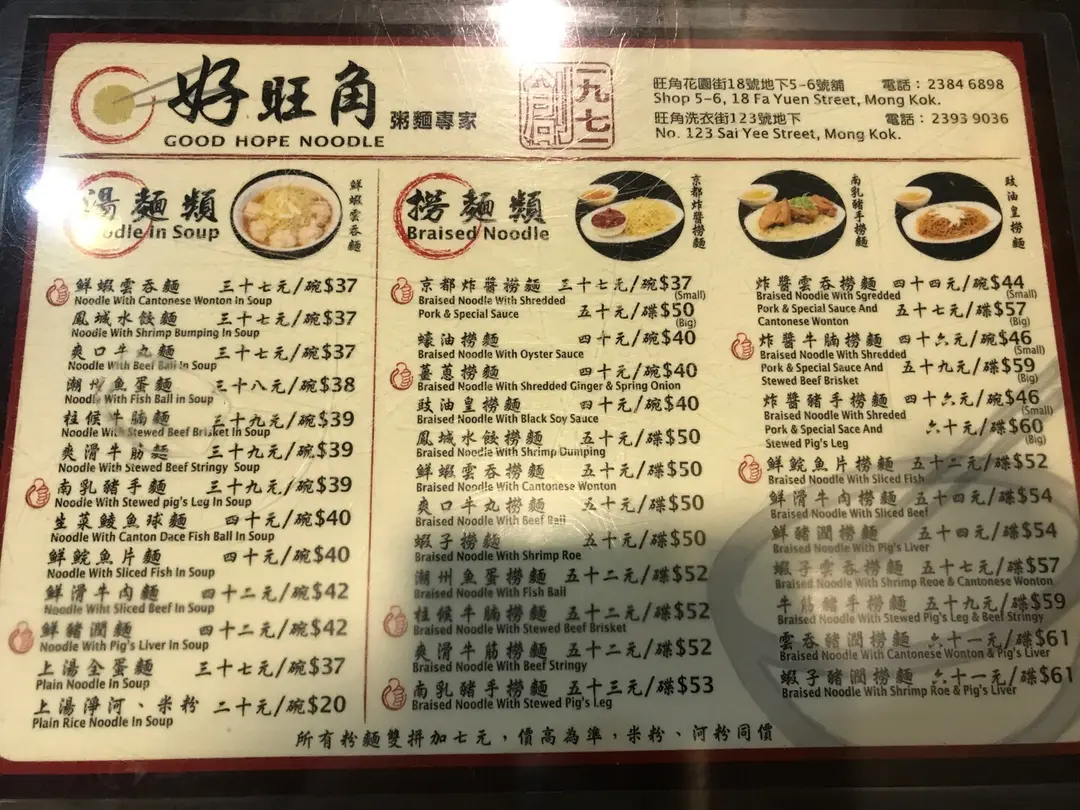 好旺角
粥麵專家
GOOD HOPE NOODLE
一九七一
創
旺角花園街18號地下5-6號舖 電話：2384 6898
Shop 5-6, 18 Fa Yuen Street, Mong Kok.
旺角洗衣街123號地下 電話：2393 9036
No. 123 Sai Yee Street, Mong Kok.
湯麵類
Noodle in Soup
鮮蝦雲吞麵
鮮蝦雲吞麵 三十七元/碗$37
Noodle With Cantonese Wonton In Soup
鳳城水餃麵 三十七元/碗$37
Noodle With Shrimp Bumping In Soup
爽口牛丸麵 三十七元/碗$37
Noodle With Beef Ball In Soup
潮州魚蛋麵 三十八元/碗$38
Noodle With Fish Ball in Soup
柱候牛腩麵 三十九元/碗$39
Noodle With Stewed Beef Brisket In Soup
爽滑牛筋麵 三十九元/碗$39
Noodle With Stewed Beef Stringy Soup
南乳豬手麵 三十九元/碗$39
Noodle With Stewed pig's Leg In Soup
生菜鯪魚球麵 四十元/碗$40
Noodle With Canton Dace Fish Ball In Soup
鮮鯇魚片麵 四十元/碗$40
Noodle With Sliced Fish In Soup
鮮滑牛肉麵 四十二元/碗$42
Noodle Wiht Sliced Beef In Soup
鮮豬潤麵 四十二元/碗$42
Noodle With Pig's Liver In Soup
上湯全蛋麵 三十七元/碗$37
Plain Noodle In Soup
上湯淨河、米粉 二十元/碗$20
Plain Rice Noodle In Soup
撈麵類
Braised Noodle
京都炸醬撈麵
南乳豬手撈麵
豉油皇撈麵
京都炸醬撈麵 三十七元/碗$37
Braised Noodle With Shredded (Small)
Pork & Special Sauce 五十元/碟$50
(Big)
蠔油撈麵 四十元/碗$40
Braised Noodle With Oyster Sauce
薑蔥撈麵 四十元/碗$40
Braised Noodle With Shredded Ginger & Spring Onion
豉油皇撈麵 四十元/碗$40
Braised Noodle With Black Soy Sauce
鳳城水餃撈麵 五十元/碟$50
Braised Noodle With Shrimp Dumping
鮮蝦雲吞撈麵 五十元/碟$50
Braised Noodle With Cantonese Wonton
爽口牛丸撈麵 五十元/碟$50
Braised Noodle With Beef Ball
蝦子撈麵 五十元/碟$50
Braised Noodle With Shrimp Roe
潮州魚蛋撈麵 五十二元/碟$52
Braised Noodle With Fish Ball
柱候牛腩撈麵 五十二元/碟$52
Braised Noodle With Stewed Beef Brisket
爽滑牛筋撈麵 五十二元/碟$52
Braised Noodle With Beef Stringy
南乳豬手撈麵 五十三元/碟$53
Braised Noodle With Stewed Pig's Leg
炸醬雲吞撈麵 四十四元/碗$44
Braised Noodle With Sgredded (Small)
Pork & Special Sauce And 五十七元/碟$57
Cantonese Wonton (Big)
炸醬牛腩撈麵 四十六元/碗$46
Braised Noodle With Shredded (Small)
Pork & Special Sauce And 五十九元/碟$59
Stewed Beef Brisket (Big)
炸醬豬手撈麵 四十六元/碗$46
Braised Noodle With Shreded (Small)
Pork & Special Sace And 六十元/碟$60
Stewed Pig's Leg (Big)
鮮鯇魚片撈麵 五十二元/碟$52
Braised Noodle With Sliced Fish
鮮滑牛肉撈麵 五十四元/碟$54
Braised Noodle With Sliced Beef
鮮豬潤撈麵 五十四元/碟$54
Braised Noodle With Pig's Liver
蝦子雲吞撈麵 五十七元/碟$57
Braised Noodle With Shrimp Reoe & Cantonese Wonton
牛筋豬手撈麵 五十九元/碟$59
Braised Noodle With Stewed Pig's Leg & Beef Stringy
雲吞豬潤撈麵 六十一元/碟$61
Braised Noodle With Cantonese Wonton & Pig's Liver
蝦子豬潤撈麵 六十一元/碟$61
Braised Noodle With Shrimp Roe & Pig's Liver
所有粉麵雙拼加七元，價高為準，米粉、河粉同價